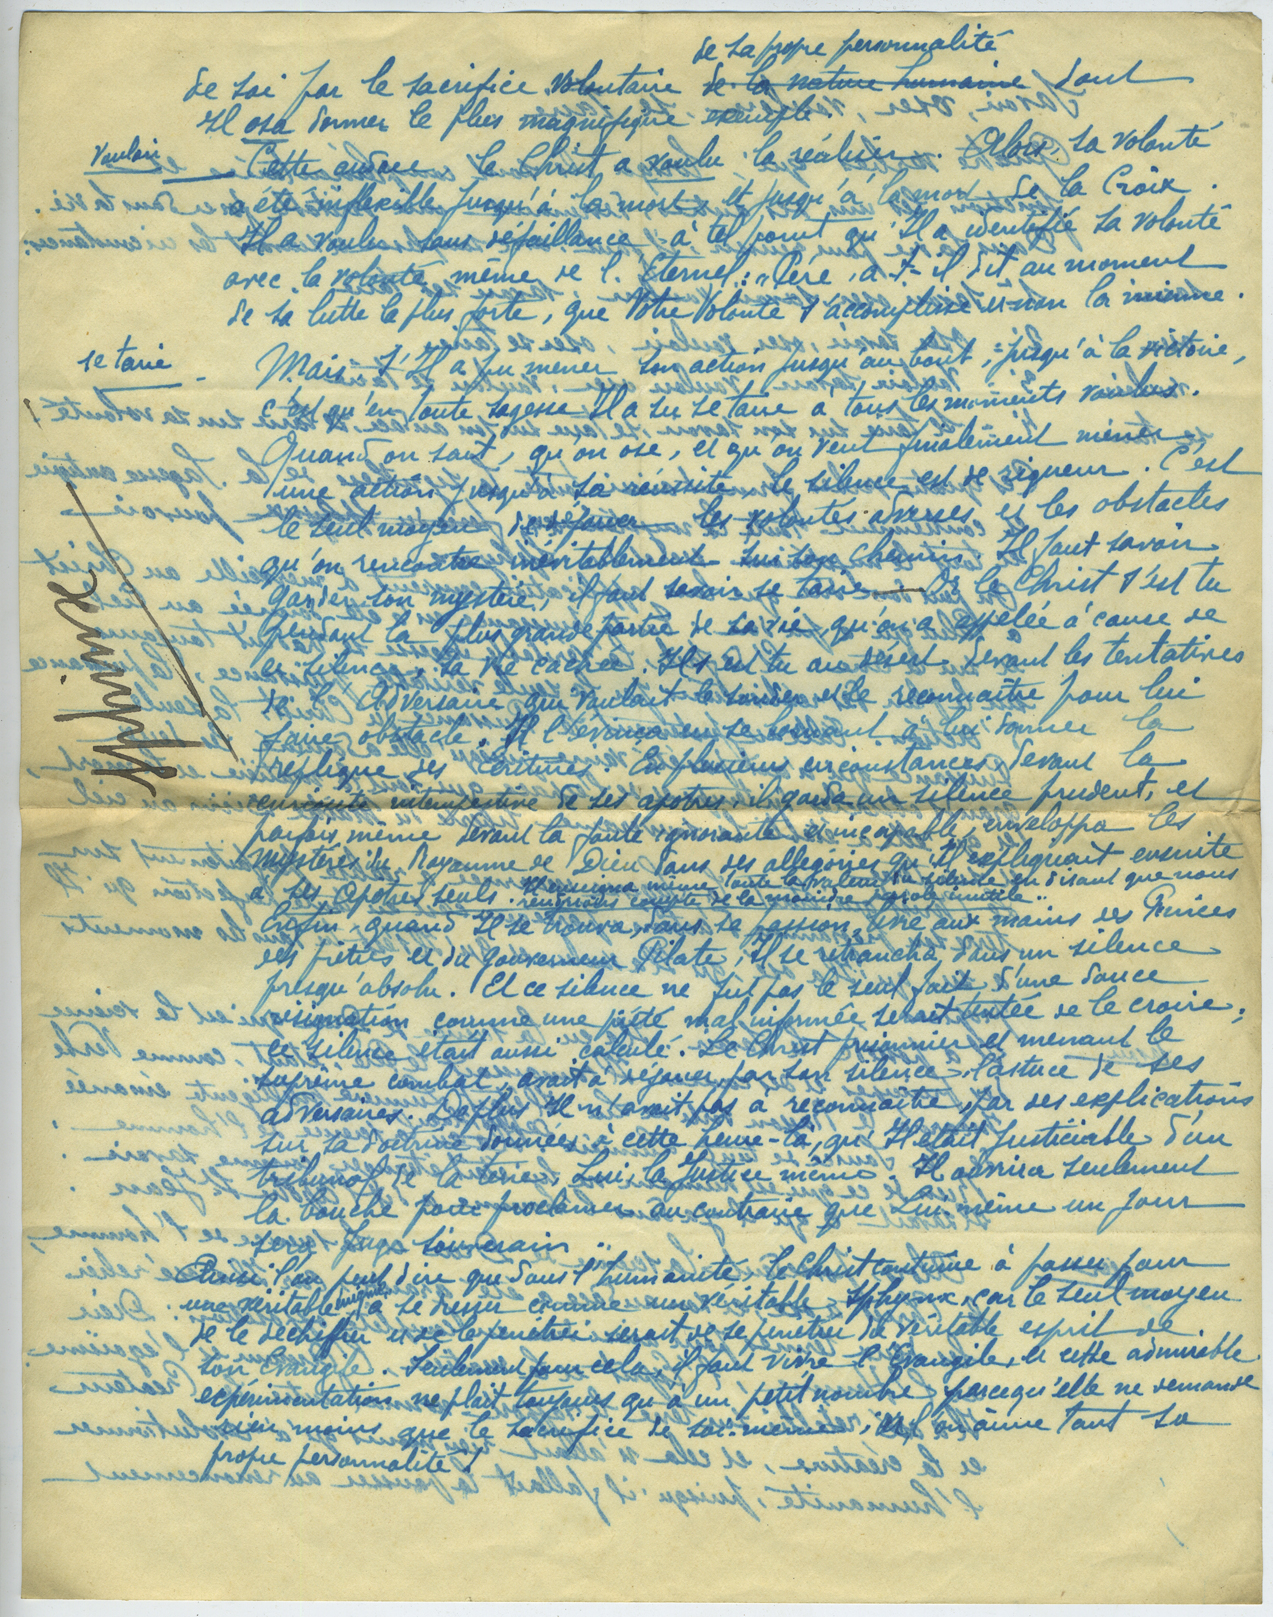 de sa propre personnalité
de soi par le sacrifice volontaire de la nature humaine dont
Il osa donner le plus magnifique exemple.
vouloir
Cette audace le Christ a voulu la réaliser. Alors sa volonté
a été inflexible jusqu'à la mort, et jusqu'à la mort de la Croix.
Il a voulu sans défaillance à tel point qu'Il a identifié sa volonté
avec la volonté même de l'Eternel : "Père, a-t-il dit au moment
de sa lutte la plus forte, que Votre Volonté s'accomplisse et non la mienne.
se taire
Mais s'Il a pu mener son action jusqu'au bout, jusqu'à la victoire,
c'est qu'en toute sagesse Il a su se taire à tous les moments voulus.
Quand on sait, qu'on ose, et qu'on veut finalement mener
une action jusqu'à sa réussite le silence est de rigueur. C'est
le seul moyen de déjouer les volontés adverses et les obstacles
qu'on rencontre inévitablement sur son chemin. Il faut savoir
garder son mystère, il faut savoir se taire. Or le Christ s'est tu
pendant la plus grande partie de sa vie, qu'on a appelée à cause de
ce silence, la vie cachée. Il s'est tu au désert devant les tentatives
de l'Adversaire qui voulait le sonder et le reconnaître pour lui
faire obstacle. Il l'évinça en se bornant à lui donner la
réplique des Ecritures. En plusieurs circonstances, devant la
curiosité intempestive de ses apôtres, il garda un silence prudent, et
parfois même devant la foule ignorante et incapable, enveloppa les
mystères du Royaume de Dieu dans des allégories qu'Il expliquait ensuite
à ses apôtres seuls. Il enseigna même toute la valeur du silence en disant que nous
rendrons compte de la moindre parole inutile.
Enfin, quand Il se trouva, dans sa passion, livré aux mains des Princes
des prêtres et du gouverneur Pilate, Il se retrancha dans un silence
presqu'absolu. Et ce silence ne fut pas le seul fait d'une douce
résignation comme une piété mal informée serait tentée de le croire ;
ce silence était aussi calculé. Le Christ prisonnier et menant le
suprême combat, avait à déjouer par son silence l'astuce de ses
adversaires. De plus Il n'avait pas à reconnaître, par des explications
sur sa doctrine données à cette heure-là, qu'Il était justiciable d'un
tribunal de la terre, Lui, la Justice même. Il ouvrira seulement
la bouche pour proclamer au contraire que Lui-même un jour
sera Juge souverain.
Aussi l'on peut dire que dans l'humanité le Christ continue à passer pour
une véritable énigme, à se dresser comme un véritable Sphynx, car le seul moyen
de le déchiffrer et de le pénétrer serait de se pénétrer du véritable esprit de
son Evangile. Seulement pour cela, il faut vivre l'Evangile, et cette admirable
expérimentation ne plaît toujours qu'à un petit nombre parcequ'elle ne demande
rien moins que le sacrifice de soi-même, et on aime tant sa
propre personnalité !